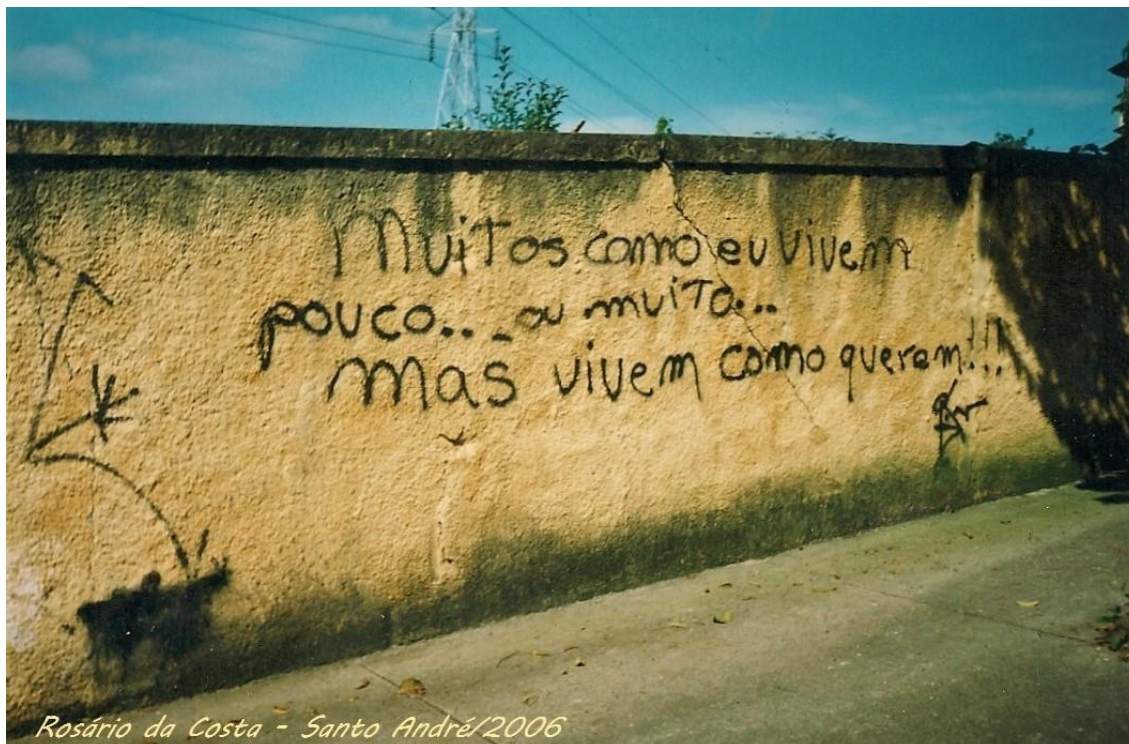 Muitos como eu vivem
pouco... ou muito...
mas vivem como querem!!!
Rosário da Costa - Santo André/2006